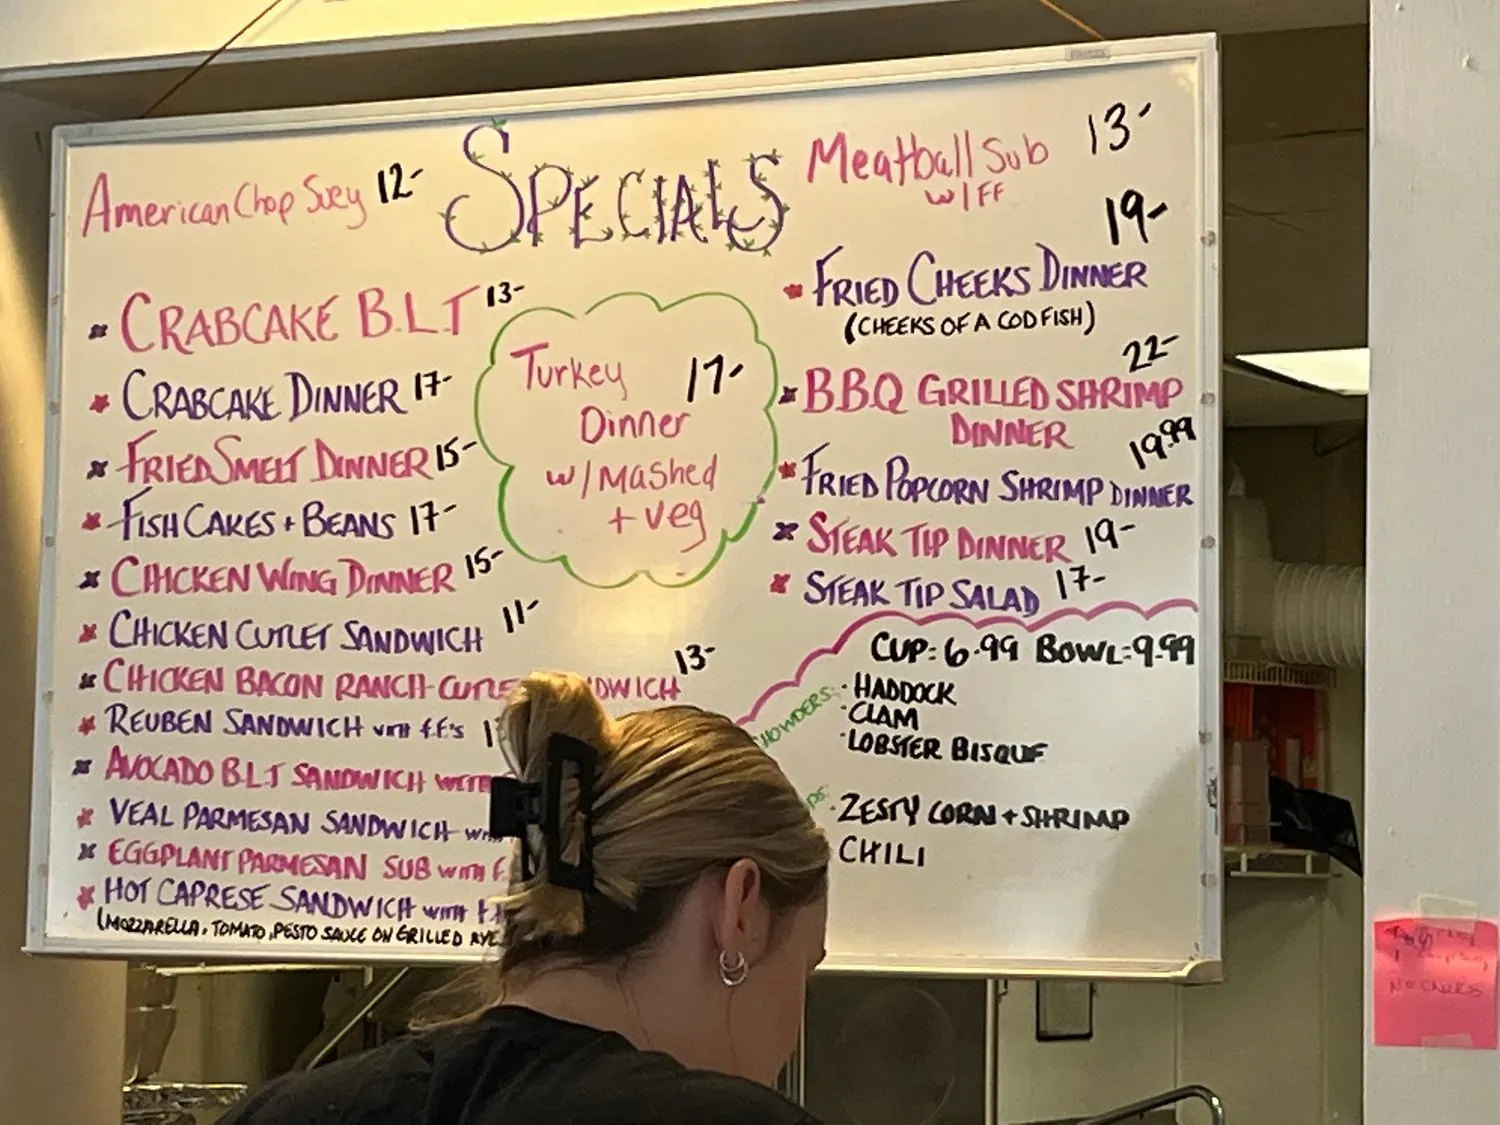 SPECIALS
American Chop Suey 12-
CRABCAKE B.L.T 13-
CRABCAKE DINNER 17-
FRIED SMELT DINNER 15-
FISH CAKES + BEANS 17-
CHICKEN WING DINNER 15-
CHICKEN CUTLET SANDWICH 11-
CHICKEN BACON RANCH CUTLE DWICH 13-
REUBEN SANDWICH WITH F.F'S
AVOCADO B.L.T SANDWICH WITH
VEAL PARMESAN SANDWICH
EGGPLANT PARMESAN SUB WITH F
HOT CAPRESE SANDWICH WITH
(MOZZARELLA, TOMATO, PESTO SAUCE ON GRILLED RYE
Turkey 17-
Dinner
w/Mashed
+ veg
Meatball Sub 13-
w/FF
19-
FRIED CHEEKS DINNER
(CHEEKS OF A COD FISH)
22-
B.B.Q GRILLED SHRIMP
DINNER
19.99
FRIED POPCORN SHRIMP DINNER
STEAK TIP DINNER 19-
STEAK TIP SALAD 17-
CUP: 6.99 BOWL: 9.99
HOWDERS:
· HADDOCK
· CLAM
· LOBSTER BISQUE
· ZESTY CORN + SHRIMP
CHILI
NO CHEEKS